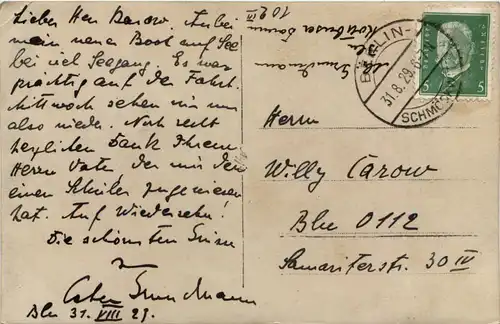 Lieber Herr Carow. Anbei
mein neues Boot auf See
bei viel Seegang. Es war
prächtig auf der Fahrt.
Mittwoch sehen wir uns
also wieder. Noch recht
herzlichen Dank Ihrem
Herrn Vater, der mir den
einen Schüler zugewiesen
hat. Auf Wiedersehn!
Die schönsten Grüsse
Bln 31. VIII 29.
BERLIN-
31.8.29.
SCHMÖCKWITZ
5 5
Herrn
Willy Carow
Bln O112
Samariterstr. 30 IV